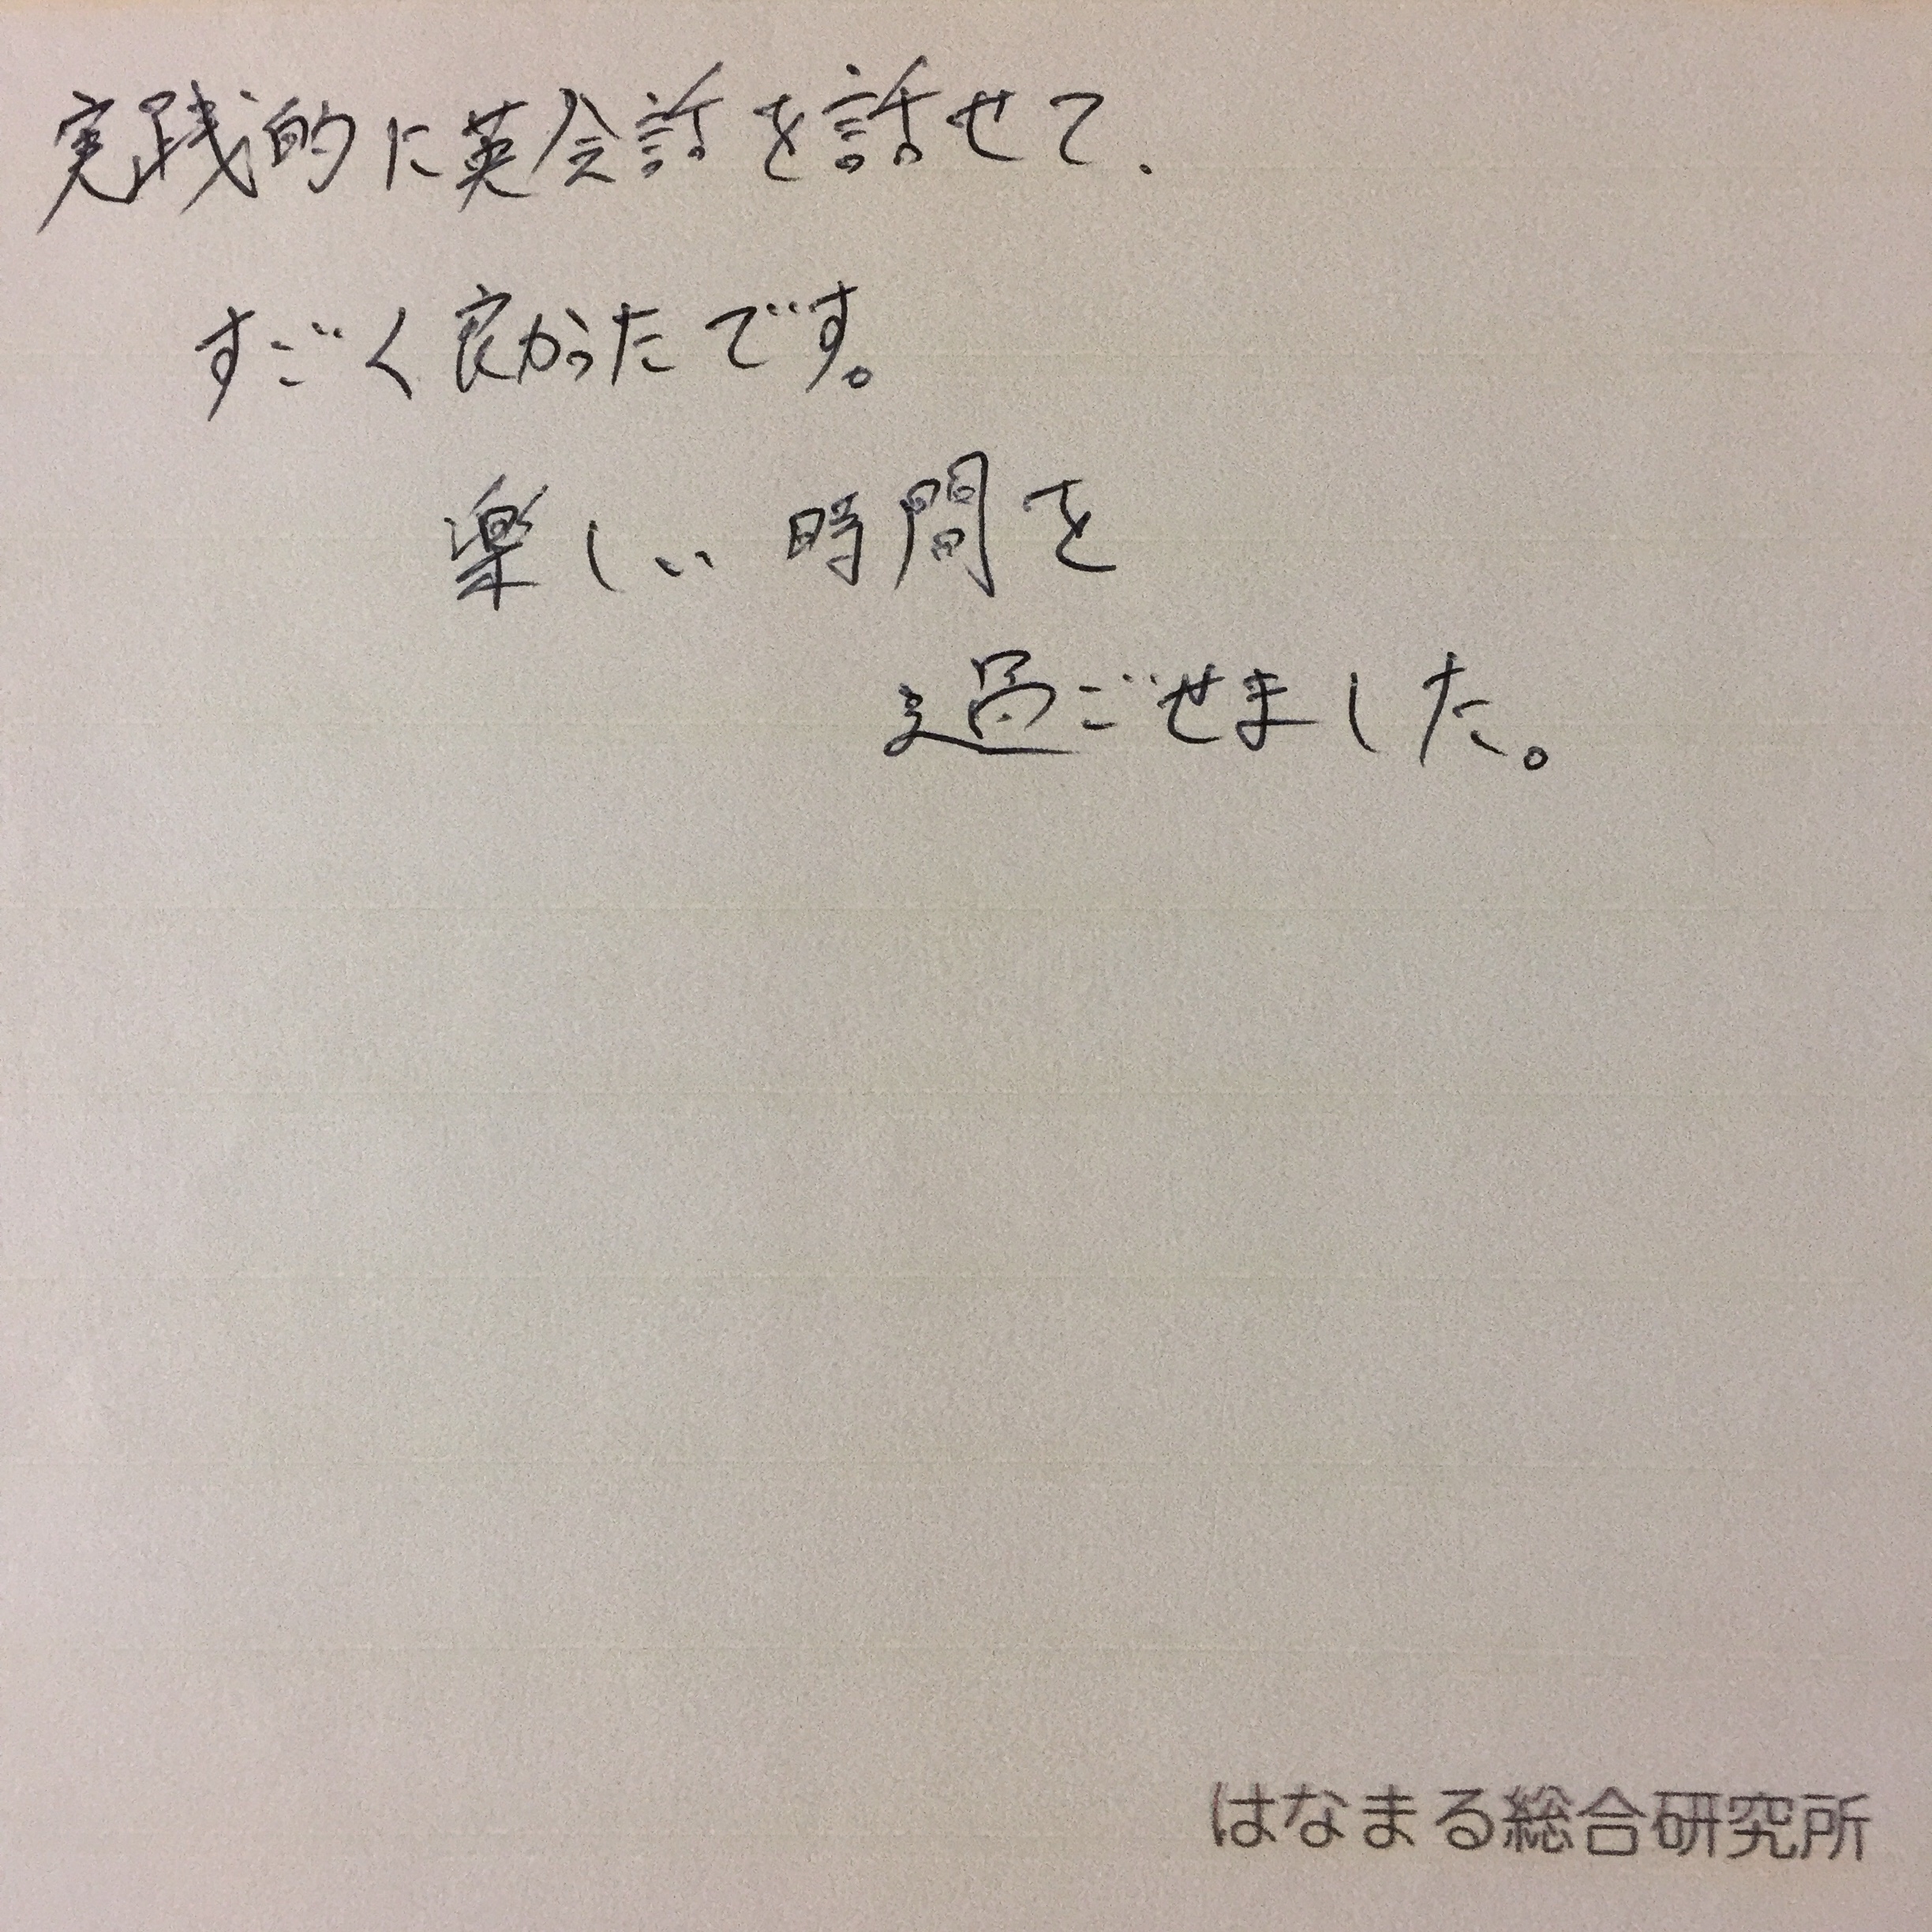 実践的に英会話を話せて、
すごく良かったです。
楽しい時間を
過ごせました。
はなまる総合研究所